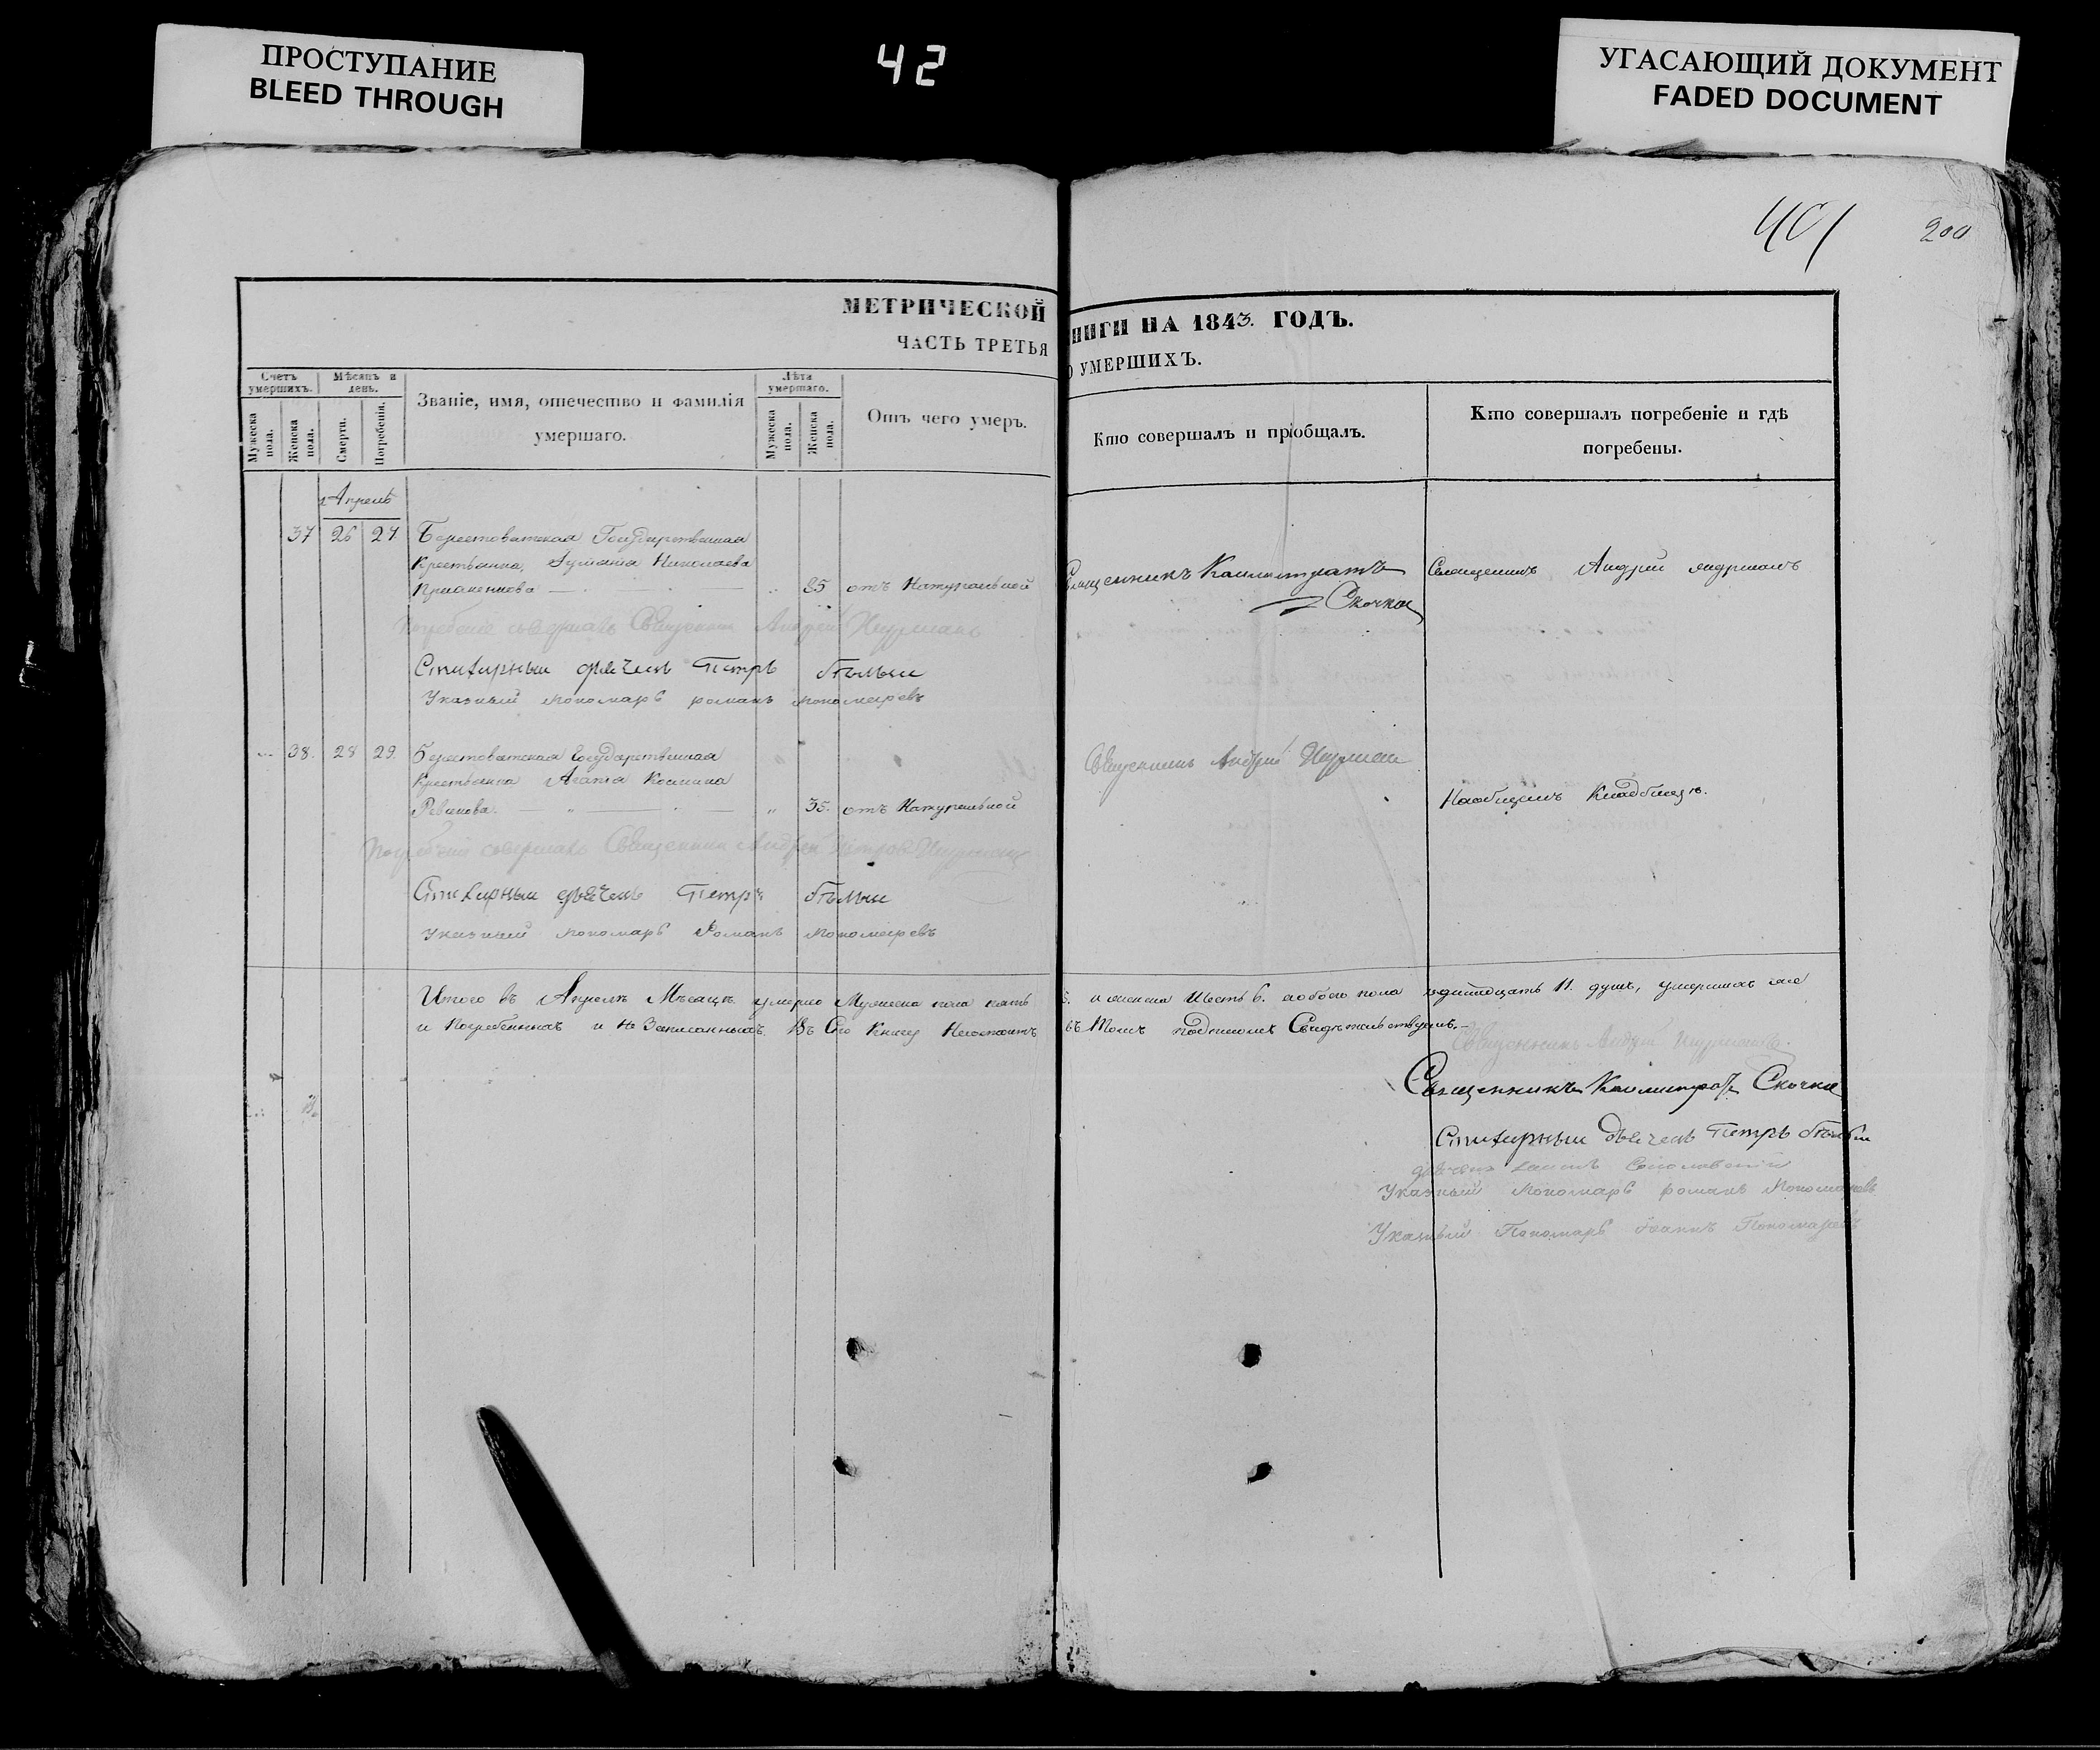 ПРОСТУПАНИЕ
BLEED THROUGH
42
УГАСАЮЩИЙ ДОКУМЕНТ
FADED DOCUMENT
401
200
МЕТРИЧЕСКОЙ
НИГИ НА 1843. ГОДЪ.
ЧАСТЬ ТРЕТЬЯ
О УМЕРШИХЪ.
Счетъ умершихъ.
Мужеска пола.
Женска пола.
Мѣсяцъ и день.
Смерти.
Погребенія.
Званіе, имя, отечество и фамилія
умершаго.
Лѣта умершаго.
Мужеска пола.
Женска пола.
Отъ чего умеръ.
Кто совершалъ и пріобщалъ.
Кто совершалъ погребеніе и гдѣ
погребены.
Апрель
37 26 27 Берестоватская Государственная
Крестьянка, Николаева
85 отъ Натуральной
Священникъ Каллистратъ
Скочка
Священникъ Андрей
Погребеніе совершалъ Священникъ Андрей
Стихарный дьячекъ Петръ
Указный пономарь романъ пономаревъ
38. 28 29. Берестоватская Государственная
Крестьянка Агафія
35. отъ Натуральной
Священникъ Андрей
На общемъ Кладбищѣ.
совершалъ Священникъ Андрей
Стихарный дьячекъ Петръ
указный пономарь Романъ пономаревъ
Итого въ Апрелѣ Мѣсацѣ умерло Мужеска пола пять 5. и женска Шесть 6. а обоего пола одинадцать 11. душъ, умершихъ же
и Погребенныхъ и Не Записанныхъ Въ Сію Книгу Несостоитъ въ Томъ подписомъ Свидѣтельствуемъ.
Священникъ Андрей
Священникъ Каллистратъ Скочка
Стихарный дьячекъ Петръ
дьячекъ
Указный пономарь романъ пономаревъ
Указный Пономарь Іоаннъ Пономаревъ